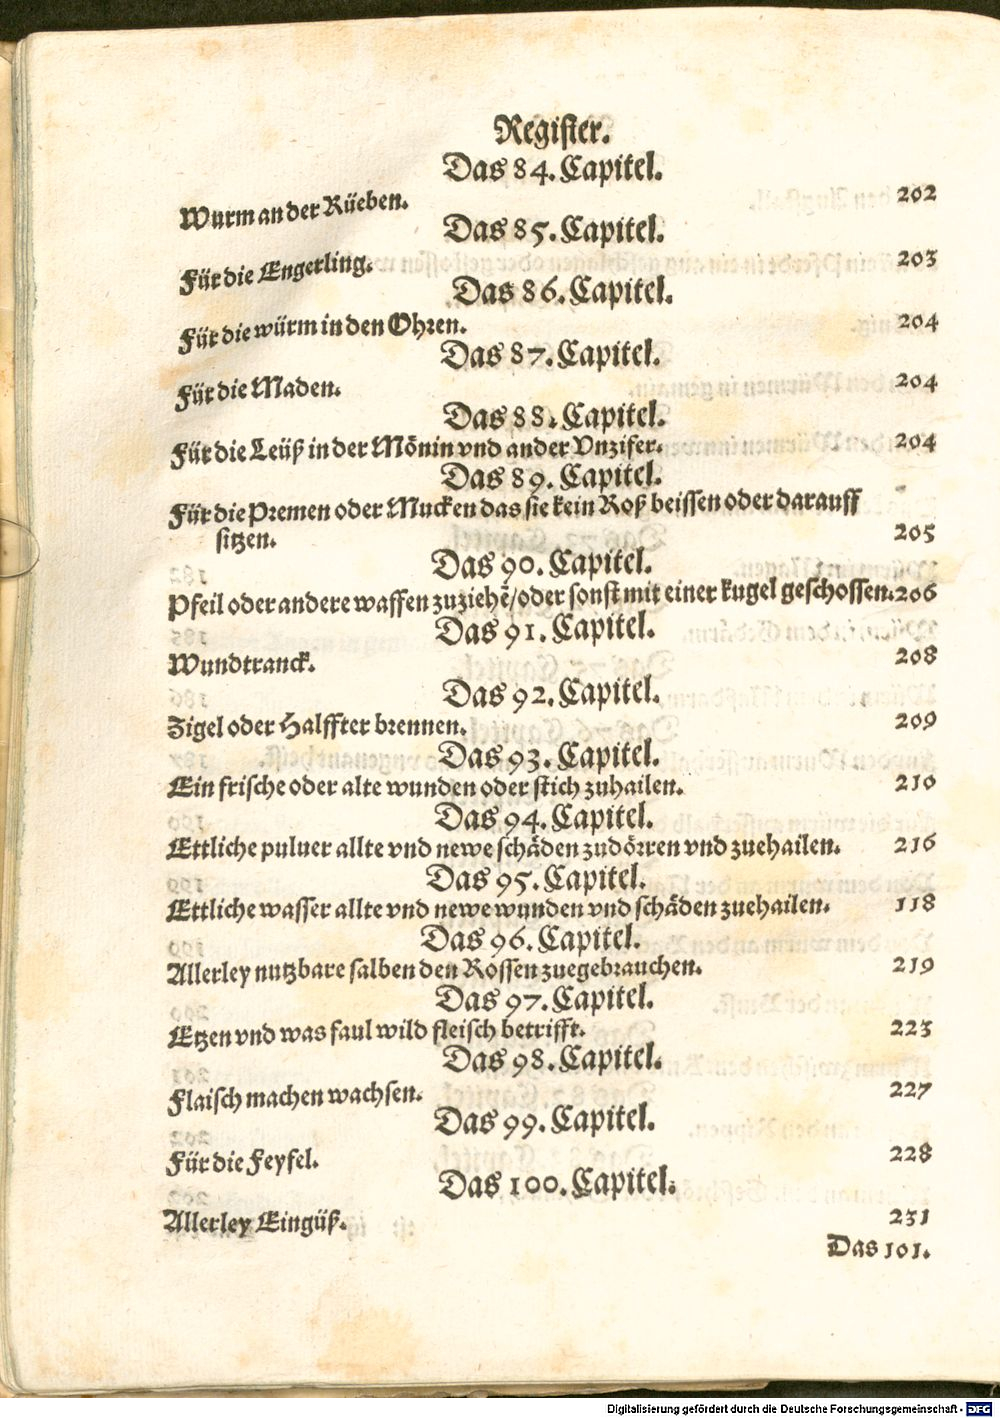 Register.
Das 84. Capitel.
Wurm an der Rüeben. 202
Das 85. Capitel.
Für die Engerling. 203
Das 86. Capitel.
Für die würm in den Ohren. 204
Das 87. Capitel.
Für die Maden. 204
Das 88. Capitel.
Für die Leüß in der Mönin vnd ander Vnzifer. 204
Das 89. Capitel.
Für die Premen oder Mucken das sie kein Roß beissen oder darauff
sitzen. 205
Das 90. Capitel.
Pfeil oder andere waffen zuziehẽ/oder sonst mit einer kugel geschossen. 206
Das 91. Capitel.
Wundtranck. 208
Das 92. Capitel.
Zigel oder Halffter brennen. 209
Das 93. Capitel.
Ein frische oder alte wunden oder stich zuhailen. 210
Das 94. Capitel.
Ettliche puluer allte vnd newe schäden zudörren vnd zuehailen. 216
Das 95. Capitel.
Ettliche wasser allte vnd newe wunden vnd schäden zuehailen. 118
Das 96. Capitel.
Allerley nutzbare salben den Rossen zuegebrauchen. 219
Das 97. Capitel.
Etzen vnd was faul wild fleisch betrifft. 223
Das 98. Capitel.
Flaisch machen wachsen. 227
Das 99. Capitel.
Für die Feyfel. 228
Das 100. Capitel.
Allerley Eingüß. 231
Das 101.
Digitalisierung gefördert durch die Deutsche Forschungsgemeinschaft - DFG